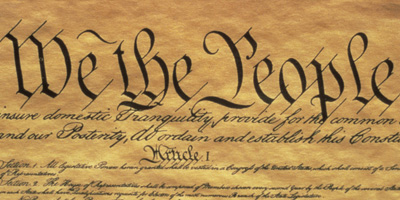 We the People
insure domestic Tranquility, provide for the common
and our Posterity, do ordain and establish this Const
Article. I.
Section. 1. All legislative Powers herein granted shall be vested in a Congress of the United States, which shall consist of a
of Representatives.
Section. 2. The House of Representatives shall be composed of Members chosen every second Year by the People of the several States